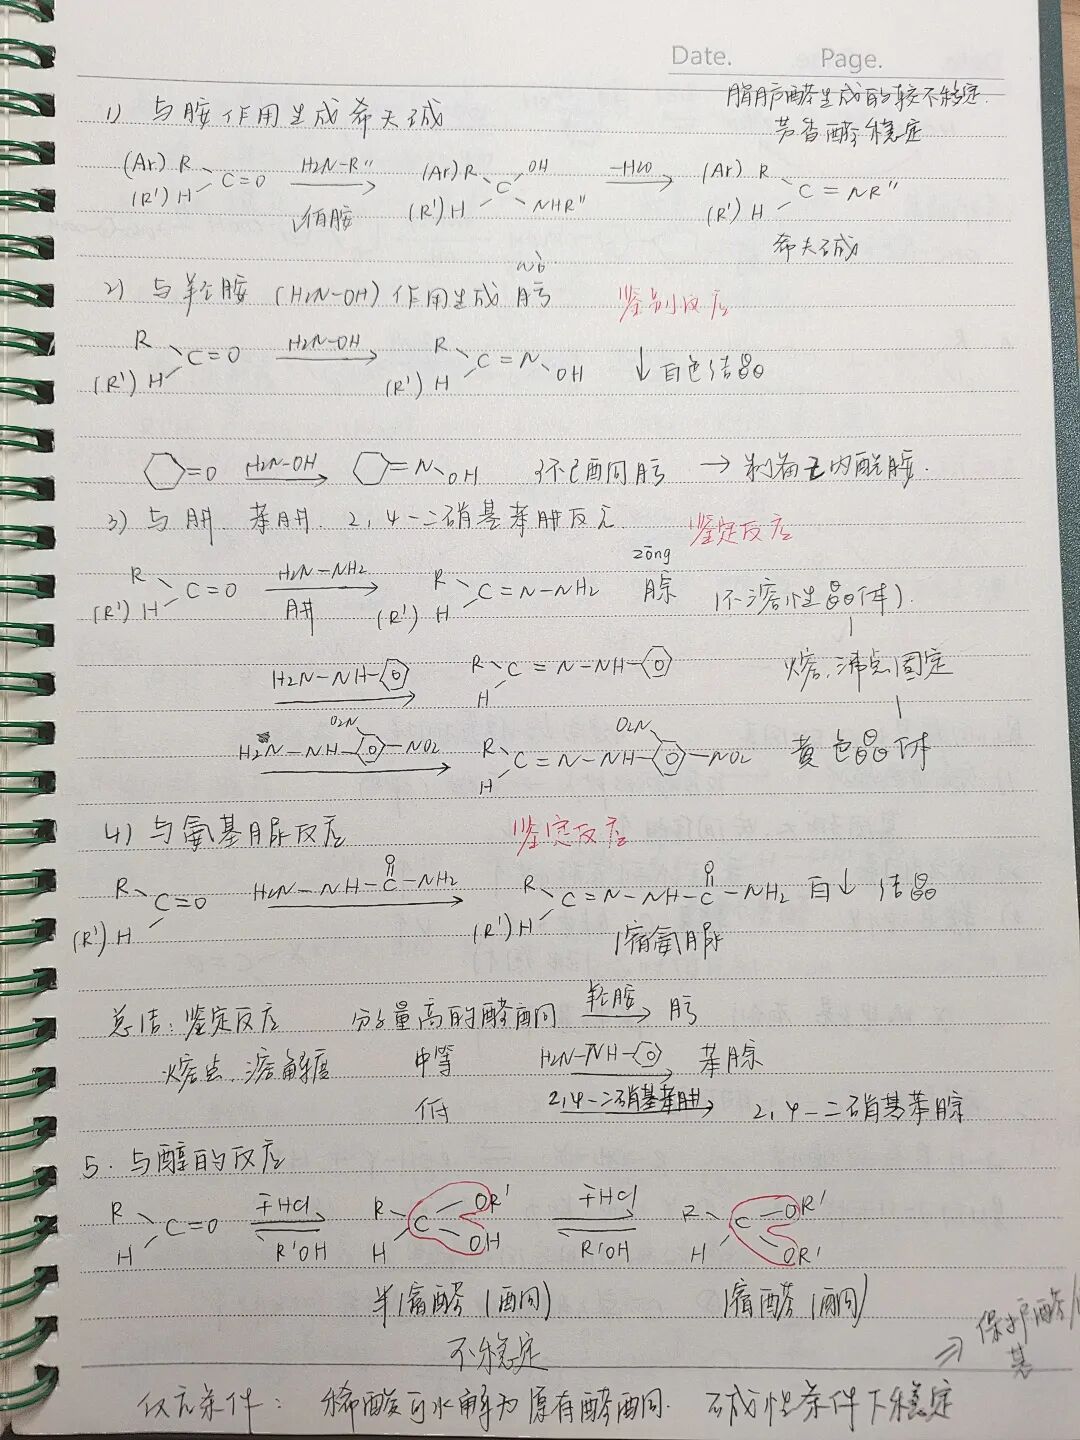 Date. Page.
脂肪醛生成的较不稳定.
芳香醛稳定
1) 与胺作用生成希夫碱
(Ar) R (R') H C=O H2N-R'' 伯胺 (Ar) R (R') H C OH NHR'' -H2O (Ar) R (R') H C=NR''
希夫碱
wò
2) 与羟胺 (H2N-OH) 作用生成肟 鉴别反应
R (R') H C=O H2N-OH R (R') H C=N OH ↓白色结晶
=O H2N-OH =N OH 环己酮肟 → 制备己内酰胺.
3) 与肼 苯肼. 2,4-二硝基苯肼反应 鉴定反应
zōng
R (R') H C=O H2N-NH2 肼 R (R') H C=N-NH2 腙 (不溶性晶体).
H2N-NH- R H C=N-NH- 熔.沸点固定
H2N-NH- O2N -NO2 R H C=N-NH- O2N -NO2 黄色晶体
4) 与氨基脲反应 鉴定反应
R (R') H C=O H2N-NH-C-NH2 O R (R') H C=N-NH-C-NH2 O 白↓ 结晶
缩氨脲
总结: 鉴定反应 分子量高的醛酮 羟胺 → 肟
熔点.溶解度 中等 H2N-NH- → 苯腙
低 2,4-二硝基苯肼 → 2,4-二硝基苯腙
5. 与醇的反应
R H C=O 干HCl R'OH R H C OR' OH 干HCl R'OH R H C OR' OR'
半缩醛 (酮) 缩醛 (酮)
不稳定
⇒ 保护醛
基
稀酸可水解为原有醛酮. 碱性条件下稳定